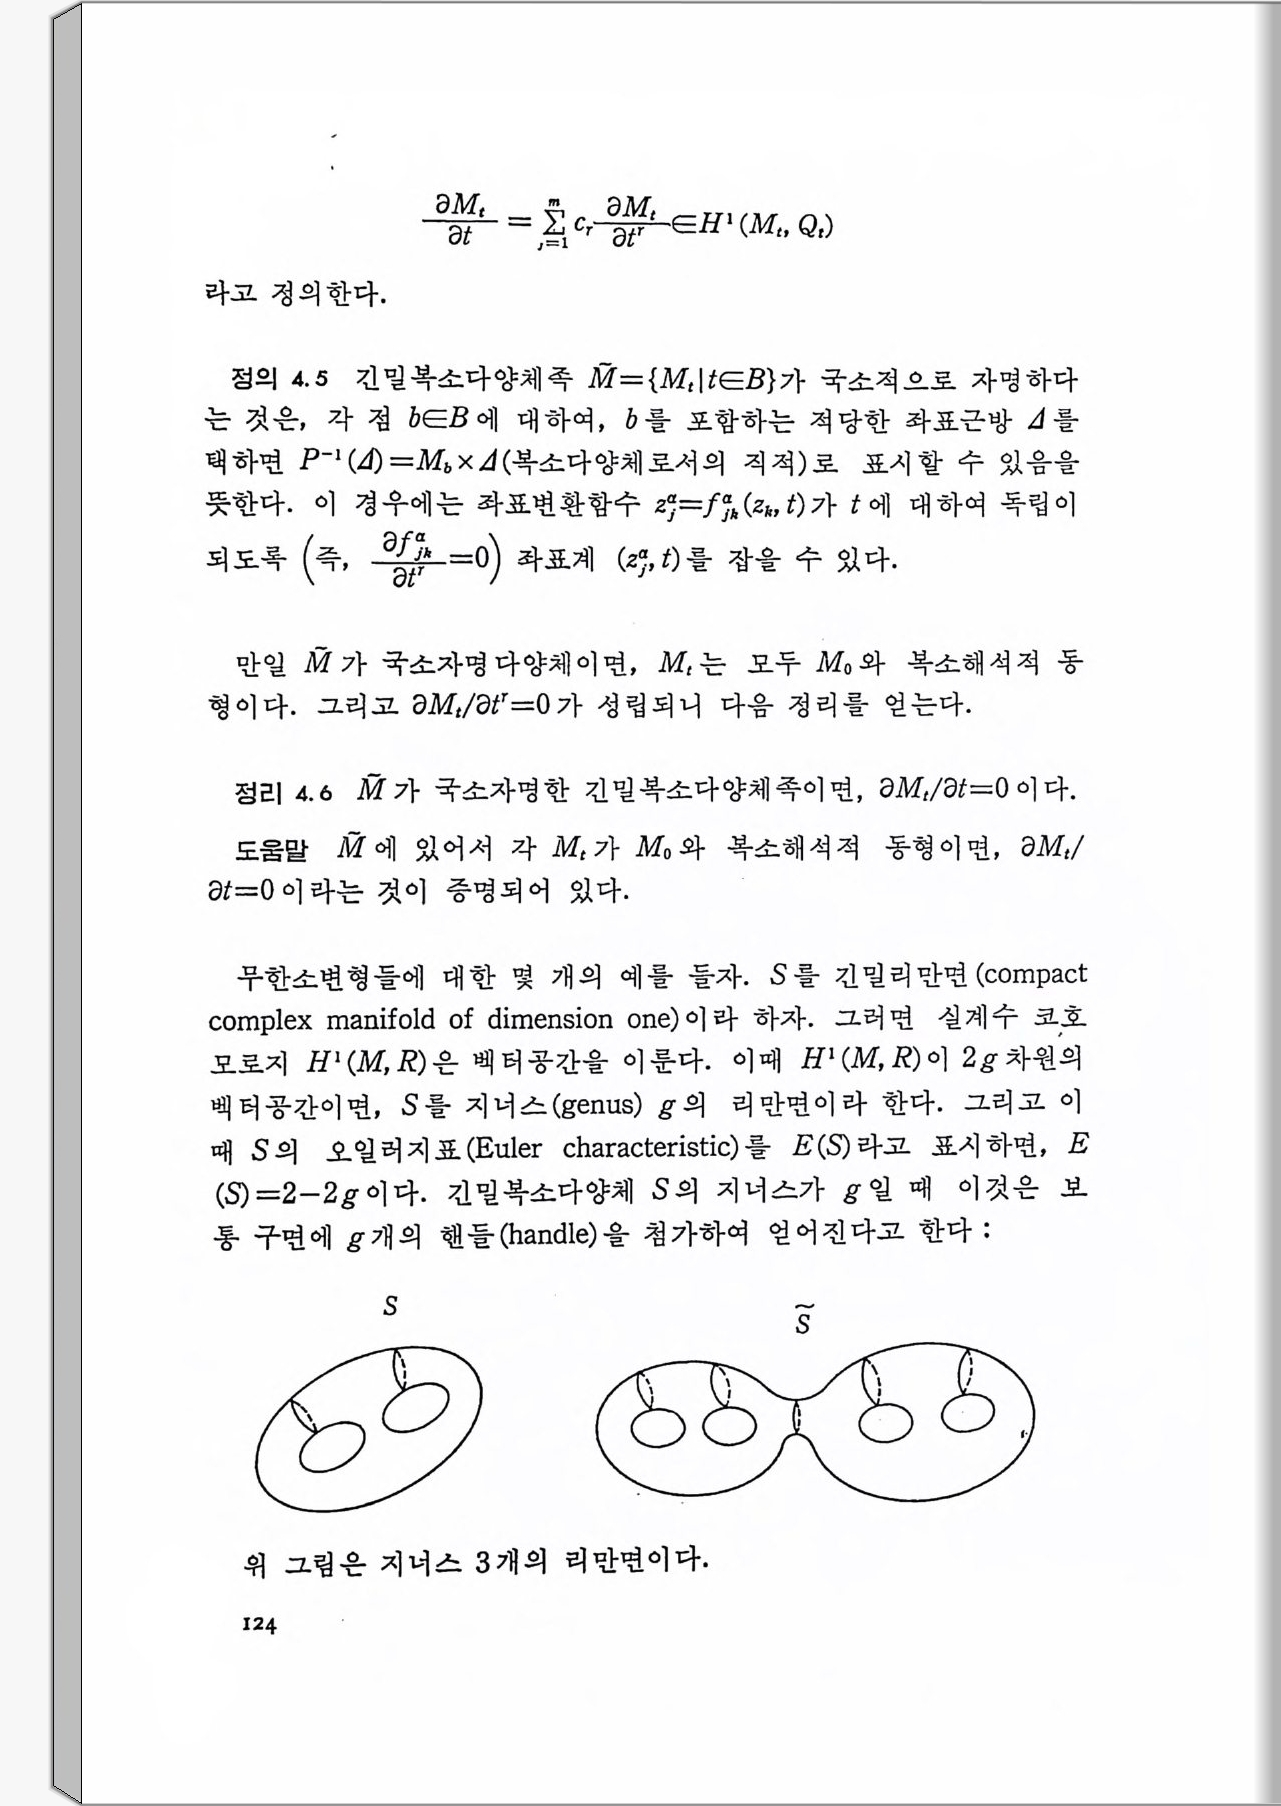 ∂Mₜ/∂t = Σ_{r=1}^{m} cᵣ ∂Mₜ/∂tʳ ∈H¹(Mₜ, Qₜ)
라고 정의한다.
정의 4.5 긴밀복소다양체족 M̃={Mₜ|t∈B}가 국소적으로 자명하다
는 것은, 각 점 b∈B에 대하여, b를 포함하는 적당한 좌표근방 Δ를
택하면 P⁻¹(Δ)=M_b×Δ(복소다양체로서의 직적)로 표시할 수 있음을
뜻한다. 이 경우에는 좌표변환함수 z_j^α=f_{jk}^α(z_k, t)가 t에 대하여 독립이
되도록 (즉, ∂f_{jk}^α/∂tʳ=0) 좌표계 (z_j^α, t)를 잡을 수 있다.
만일 M̃가 국소자명다양체이면, Mₜ는 모두 M₀와 복소해석적 동
형이다. 그리고 ∂Mₜ/∂tʳ=0가 성립되니 다음 정리를 얻는다.
정리 4.6 M̃가 국소자명한 긴밀복소다양체족이면, ∂Mₜ/∂t=0이다.
도움말 M̃에 있어서 각 Mₜ가 M₀와 복소해석적 동형이면, ∂Mₜ/
∂t=0이라는 것이 증명되어 있다.
무한소변형들에 대한 몇 개의 예를 들자. S를 긴밀리만면(compact
complex manifold of dimension one)이라 하자. 그러면 실계수 코호
모로지 H¹(M, R)은 벡터공간을 이룬다. 이때 H¹(M, R)이 2g차원의
벡터공간이면, S를 지너스(genus) g의 리만면이라 한다. 그리고 이
때 S의 오일러지표(Euler characteristic)를 E(S)라고 표시하면, E
(S)=2−2g이다. 긴밀복소다양체 S의 지너스가 g일 때 이것은 보
통 구면에 g개의 핸들(handle)을 첨가하여 얻어진다고 한다:
S
S̃
위 그림은 지너스 3개의 리만면이다.
124